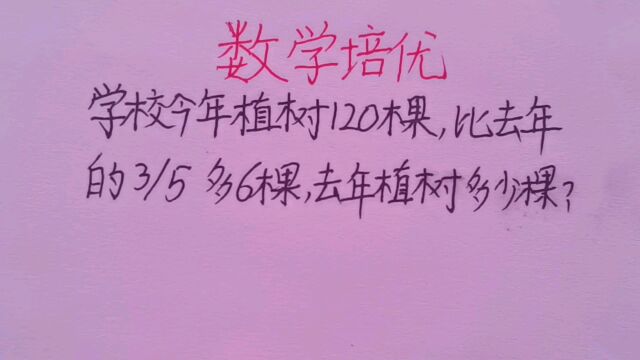 数学培优
学校今年植树120棵,比去年
的3/5多6棵,去年植树多少棵?